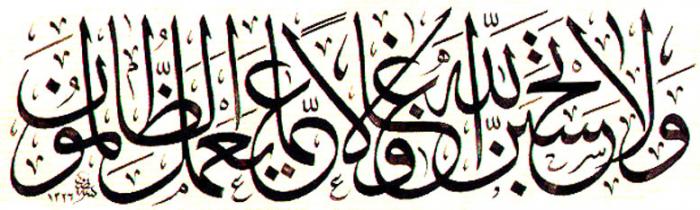 ولا تحسبن الله غافلا عما يعمل الظالمون